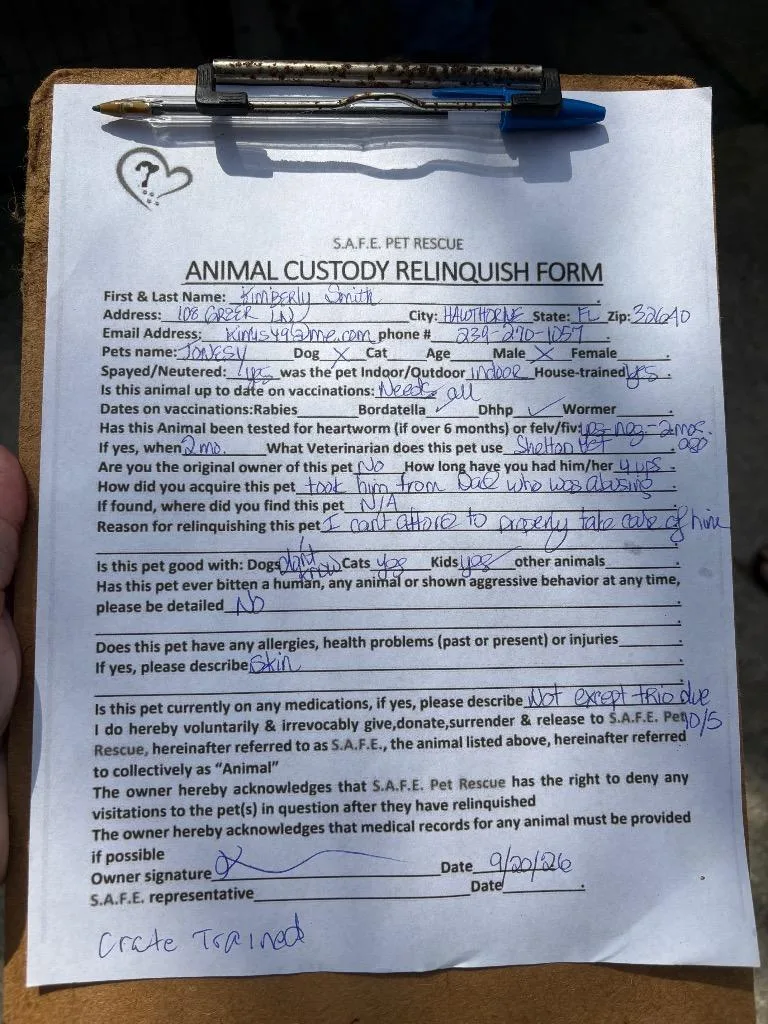 ?
S.A.F.E. PET RESCUE
ANIMAL CUSTODY RELINQUISH FORM
First & Last Name: Kimberly Smith
Address: 108 GREER LN City: HAWTHORNE State: FL Zip: 32640
Email Address: Kimis49@me.com phone # 239-270-1057
Pets name: JONESY Dog X Cat Age Male X Female
Spayed/Neutered: yes was the pet Indoor/Outdoor indoor House-trained yes
Is this animal up to date on vaccinations: Needs all
Dates on vaccinations:Rabies Bordatella ✓ Dhhp ✓ Wormer
Has this Animal been tested for heartworm (if over 6 months) or felv/fiv: yes-neg-2mos. ago
If yes, when 2 mo. What Veterinarian does this pet use Shelton Vet
Are you the original owner of this pet No How long have you had him/her 4 yrs
How did you acquire this pet took him from who was abusing
If found, where did you find this pet N/A
Reason for relinquishing this pet I can't afford to properly take care of him
Is this pet good with: Dogs don't know Cats yes Kids yes other animals
Has this pet ever bitten a human, any animal or shown aggressive behavior at any time,
please be detailed No
Does this pet have any allergies, health problems (past or present) or injuries
If yes, please describe Skin
Is this pet currently on any medications, if yes, please describe Not except trio due 10/5
I do hereby voluntarily & irrevocably give,donate,surrender & release to S.A.F.E. Pet
Rescue, hereinafter referred to as S.A.F.E., the animal listed above, hereinafter referred
to collectively as “Animal”
The owner hereby acknowledges that S.A.F.E. Pet Rescue has the right to deny any
visitations to the pet(s) in question after they have relinquished
The owner hereby acknowledges that medical records for any animal must be provided
if possible
Owner signature Date 9/20/26
S.A.F.E. representative Date
Crate Trained